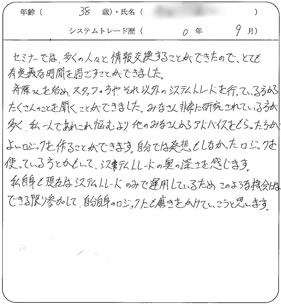 年齢( 38 歳)・氏名( )
システムトレード歴( 0 年 9 月)
セミナーでは、多くの人々と情報交換することができたので、とても
有意義な時間を過ごすことができました。
斉藤さんを始め、スタッフの方やそれ以外のシステムトレードを行っている方から
たくさんのことを聞くことができました。みなさん非常に研究されている方が
多く、私一人であれこれ悩むより他のみなさんからアドバイスをもらった方が
よいロジックを作ることができます。自分では発想もしなかったロジックを
使っている方とかもいて、システムトレードの奥の深さを感じます。
私自身も現在はシステムトレードのみで運用しているため、このような機会には
できる限り参加して、自分自身のロジックにも磨きをかけていこうと思います。